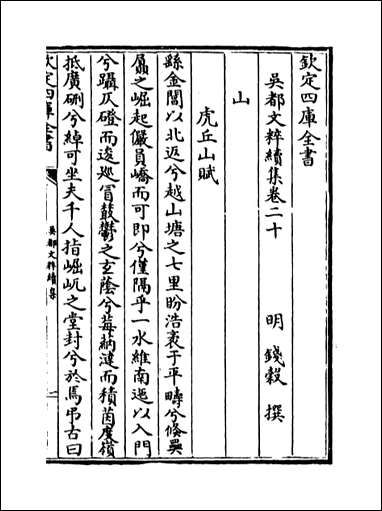 欽定四庫全書
吳都文粹續集卷二十
明 錢榖 撰
山
虎丘山賦
繇金閶以北返兮越山塘之七里盼浩衺于平疇兮倏奰
屭之崛起儼員嶠而可即兮僅隔乎一水維南迤以入門
兮躡仄磴而逡廵冒鼓鬱之玄蔭兮莓蒳漣而積茵度嶺
抵廣硎兮綽可坐夫千人指崛屼之堂封兮於焉弔古曰
欽定四庫全書
吳都文粹續集